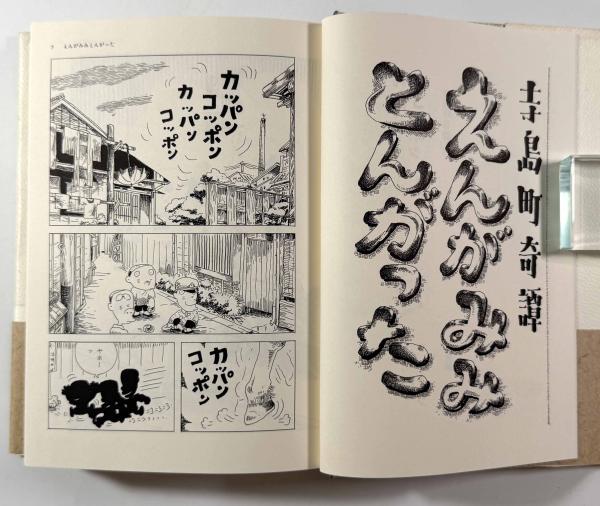 寺島町奇譚
えんがみみ
とんがった
7 えんがみみとんがった
カッパン
コッポン
カッパン
コッポン
カッパン
コッポン
やあーっ